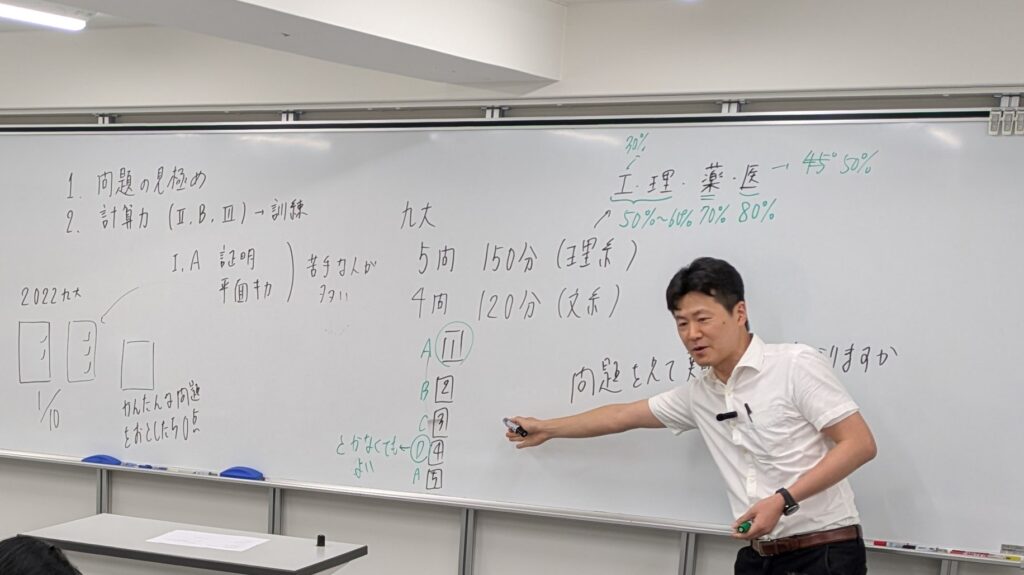 1. 問題の見極め
2. 計算力 (Ⅱ,B,Ⅲ)→訓練
Ⅰ,A 証明
平面キカ
苦手な人が
多い
2022九大
1/10
かんたんな問題
をおとしたら0点
九大
5問 150分 (理系)
4問 120分 (文系)
A 1
B 2
C 3
とかなくても
よい
← D 4
A 5
30%
工・理・薬・医 → 45° 50%
50%~60% 70% 80%
問題を見て
りますか